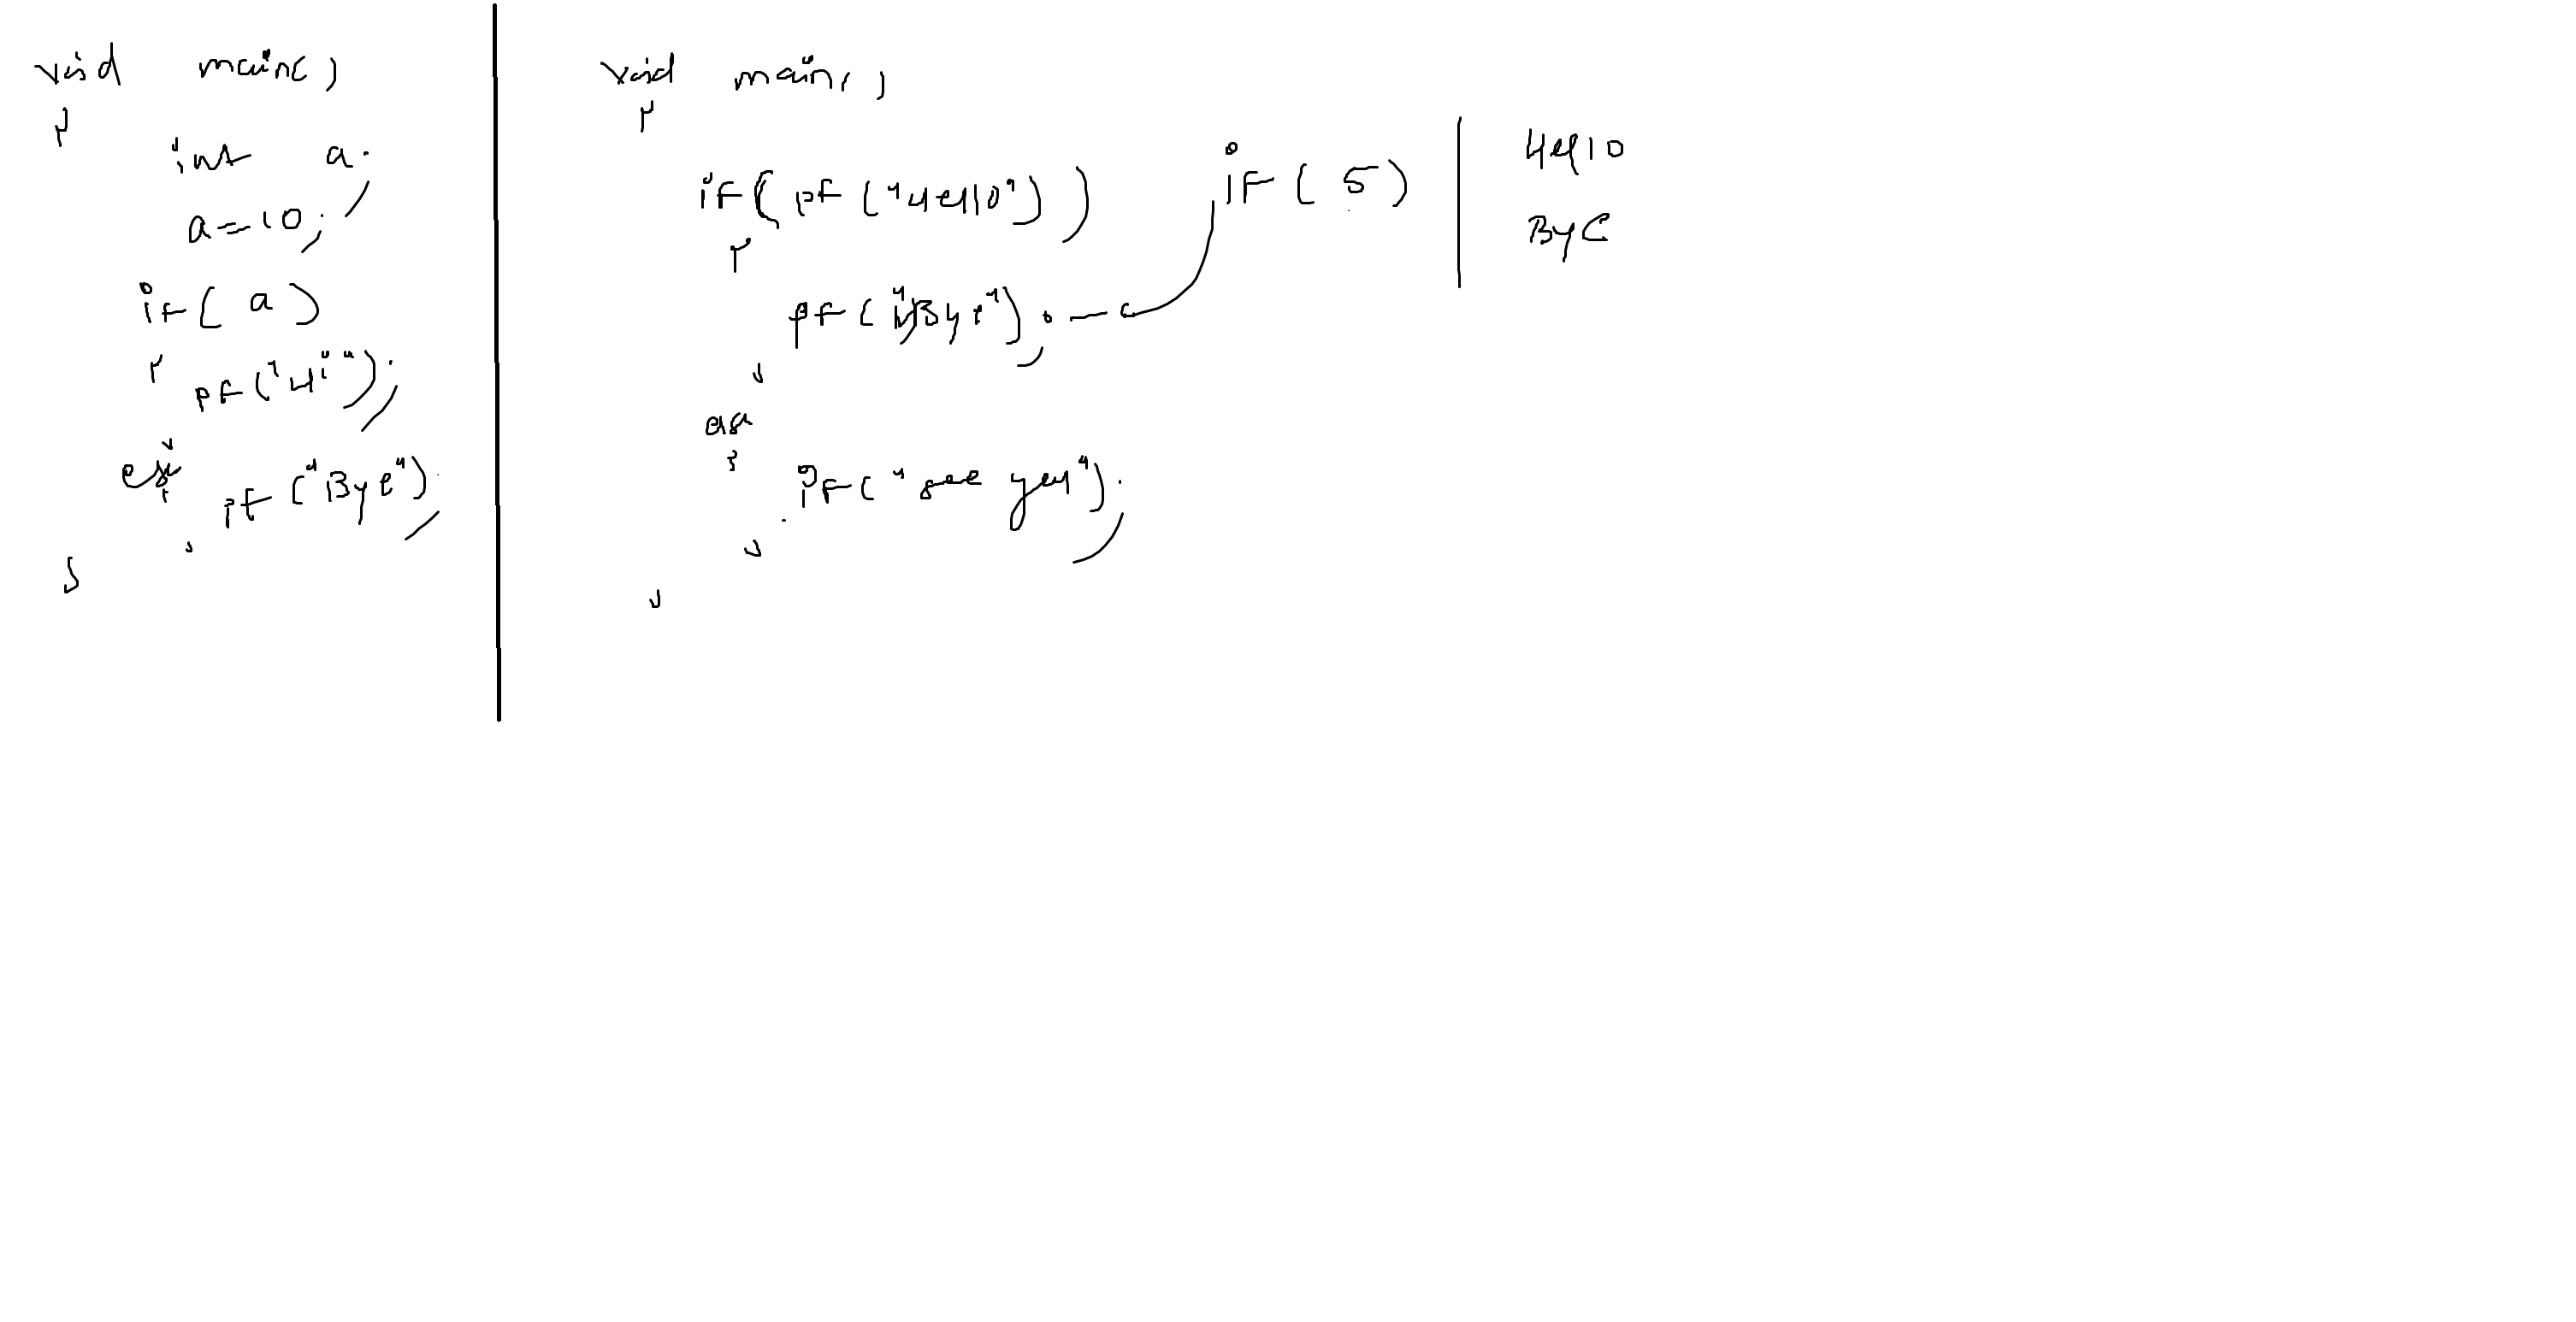 void main()
{
int a;
a=10;
if( a )
{
pf("Hi");
}
else
{
pf("Bye");
}
}
void main()
{
if( pf("Hello") )
{
pf("Bye");
}
else
{
pf("see you");
}
}
if( 5 )
Hello
Bye